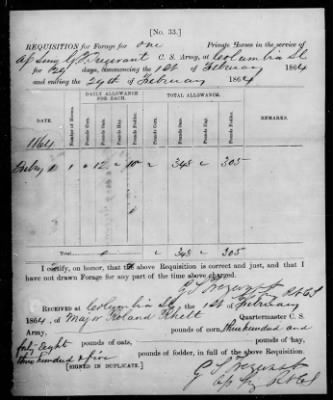 [No. 33.]
REQUISITION for Forage for one Private Horses in the service of
C. S. Army, at Columbia SC
for 29 days, commencing the 1st of February 1864
and ending the 29th of February 1864
DAILY ALLOWANCE FOR EACH. TOTAL ALLOWANCE.
DATE. Number of Horses. Pounds Corn. Pounds Oats. Pounds Hay. Pounds Fodder. Pounds Corn. Pounds Oats. Pounds Hay. Pounds Fodder. REMARKS.
1864
1 12 348 305
Total 348 305
I certify, on honor, that the above Requisition is correct and just, and that I
have not drawn Forage for any part of the time above charged.
RECEIVED at Columbia SC the 1st of February
1864, of Major Roland Rhett Quartermaster C. S.
Army, pounds of corn, three hundred and
forty eight pounds of oats, pounds of hay,
three hundred & five pounds of fodder, in full of the above Requisition.
[SIGNED IN DUPLICATE.]